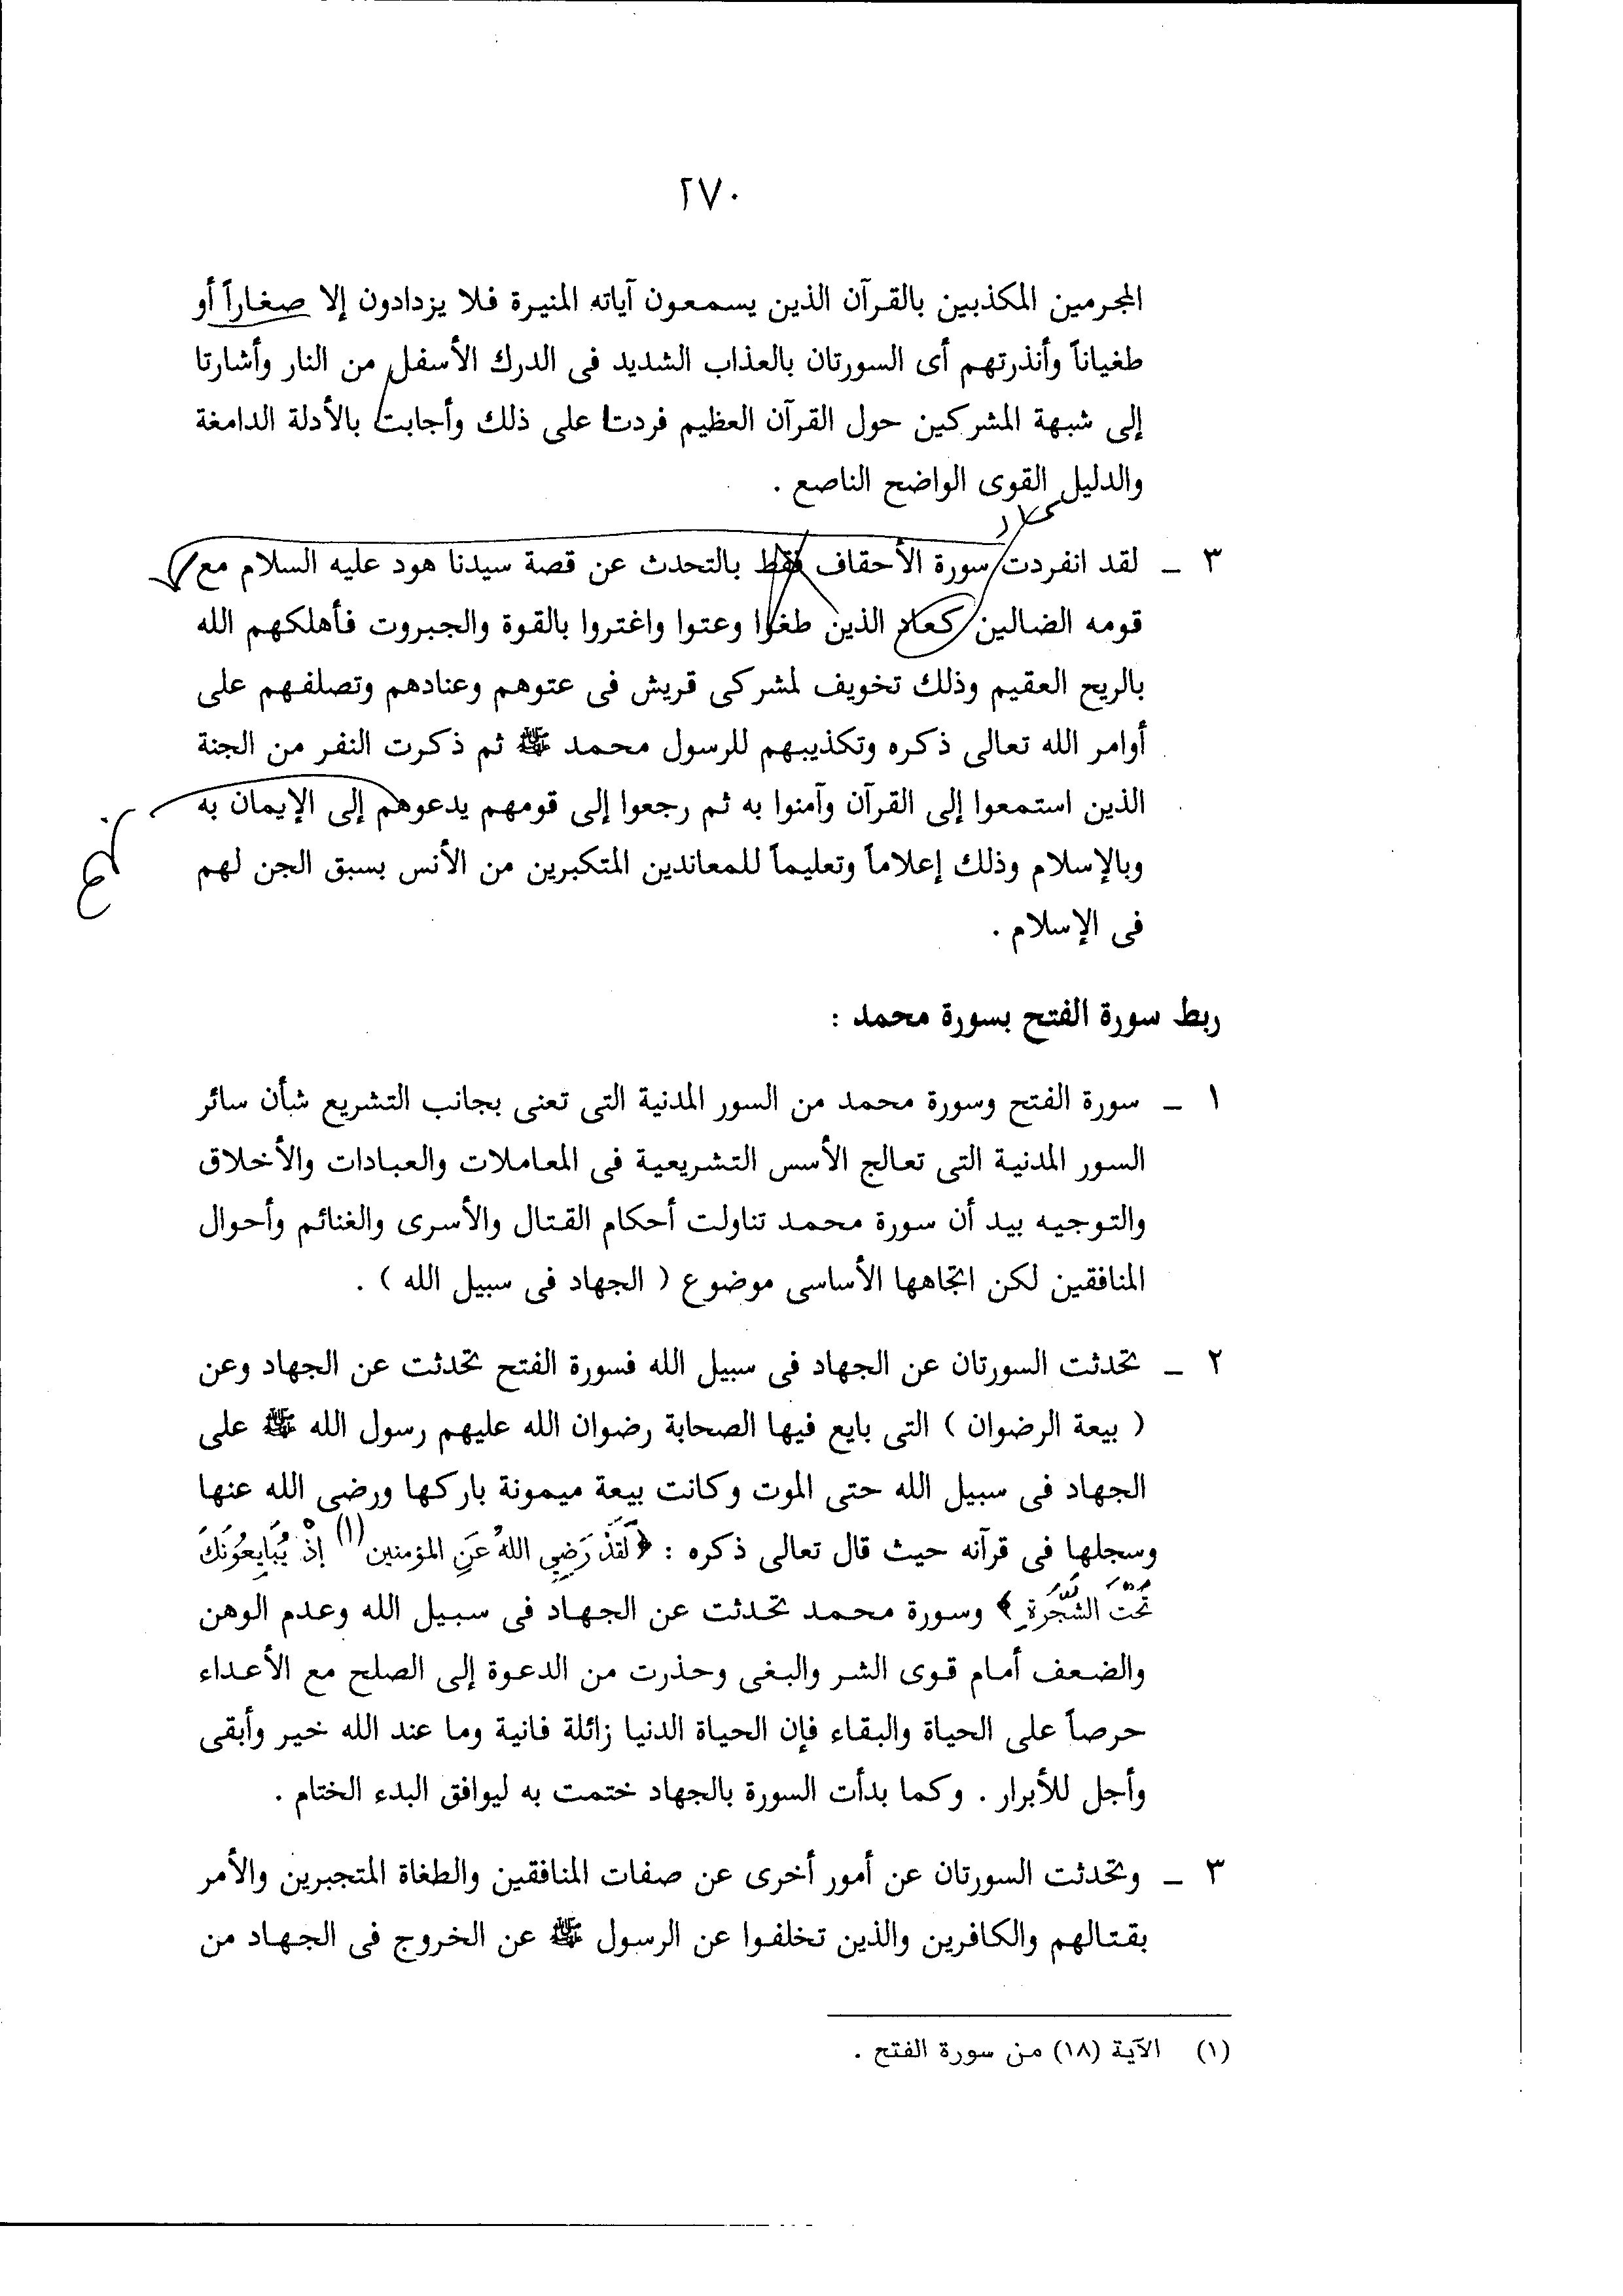 ٢٧٠
المجرمين المكذبين بالقرآن الذين يسمعون آياته المنيرة فلا يزدادون إلا صغاراً أو
طغياناً وأنذرتهم أى السورتان بالعذاب الشديد فى الدرك الأسفل من النار وأشارتا
إلى شبهة المشركين حول القرآن العظيم فردتا على ذلك وأجابت بالأدلة الدامغة
والدليل القوى الواضح الناصع .
٣ ـ لقد انفردت سورة الأحقاف فقط بالتحدث عن قصة سيدنا هود عليه السلام مع
قومه الضالين كعاد الذين طغوا وعتوا واغتروا بالقوة والجبروت فأهلكهم الله
بالريح العقيم وذلك تخويف لمشركى قريش فى عتوهم وعنادهم وتصلفهم على
أوامر الله تعالى ذكره وتكذيبهم للرسول محمد ﷺ ثم ذكرت النفر من الجنة
الذين استمعوا إلى القرآن وآمنوا به ثم رجعوا إلى قومهم يدعوهم إلى الإيمان به
وبالإسلام وذلك إعلاماً وتعليماً للمعاندين المتكبرين من الأنس بسبق الجن لهم
فى الإسلام .
ربط سورة الفتح بسورة محمد :
١ ـ سورة الفتح وسورة محمد من السور المدنية التى تعنى بجانب التشريع شأن سائر
السور المدنية التى تعالج الأسس التشريعية فى المعاملات والعبادات والأخلاق
والتوجيه بيد أن سورة محمد تناولت أحكام القتال والأسرى والغنائم وأحوال
المنافقين لكن اتجاهها الأساسى موضوع ( الجهاد فى سبيل الله ) .
٢ ـ تحدثت السورتان عن الجهاد فى سبيل الله فسورة الفتح تحدثت عن الجهاد وعن
( بيعة الرضوان ) التى بايع فيها الصحابة رضوان الله عليهم رسول الله ﷺ على
الجهاد فى سبيل الله حتى الموت وكانت بيعة ميمونة باركها ورضى الله عنها
وسجلها فى قرآنه حيث قال تعالى ذكره : ﴿ لَقَدْ رَضِيَ اللهُ عَنِ المؤمنين (١) إذْ يُبَايِعُونَكَ
تَحْتَ الشَّجَرَةِ ﴾ وسورة محمد تحدثت عن الجهاد فى سبيل الله وعدم الوهن
والضعف أمام قوى الشر والبغى وحذرت من الدعوة إلى الصلح مع الأعداء
حرصاً على الحياة والبقاء فإن الحياة الدنيا زائلة فانية وما عند الله خير وأبقى
وأجل للأبرار . وكما بدأت السورة بالجهاد ختمت به ليوافق البدء الختام .
٣ ـ وتحدثت السورتان عن أمور أخرى عن صفات المنافقين والطغاة المتجبرين والأمر
بقتالهم والكافرين والذين تخلفوا عن الرسول ﷺ عن الخروج فى الجهاد من
(١) الآية (١٨) من سورة الفتح .